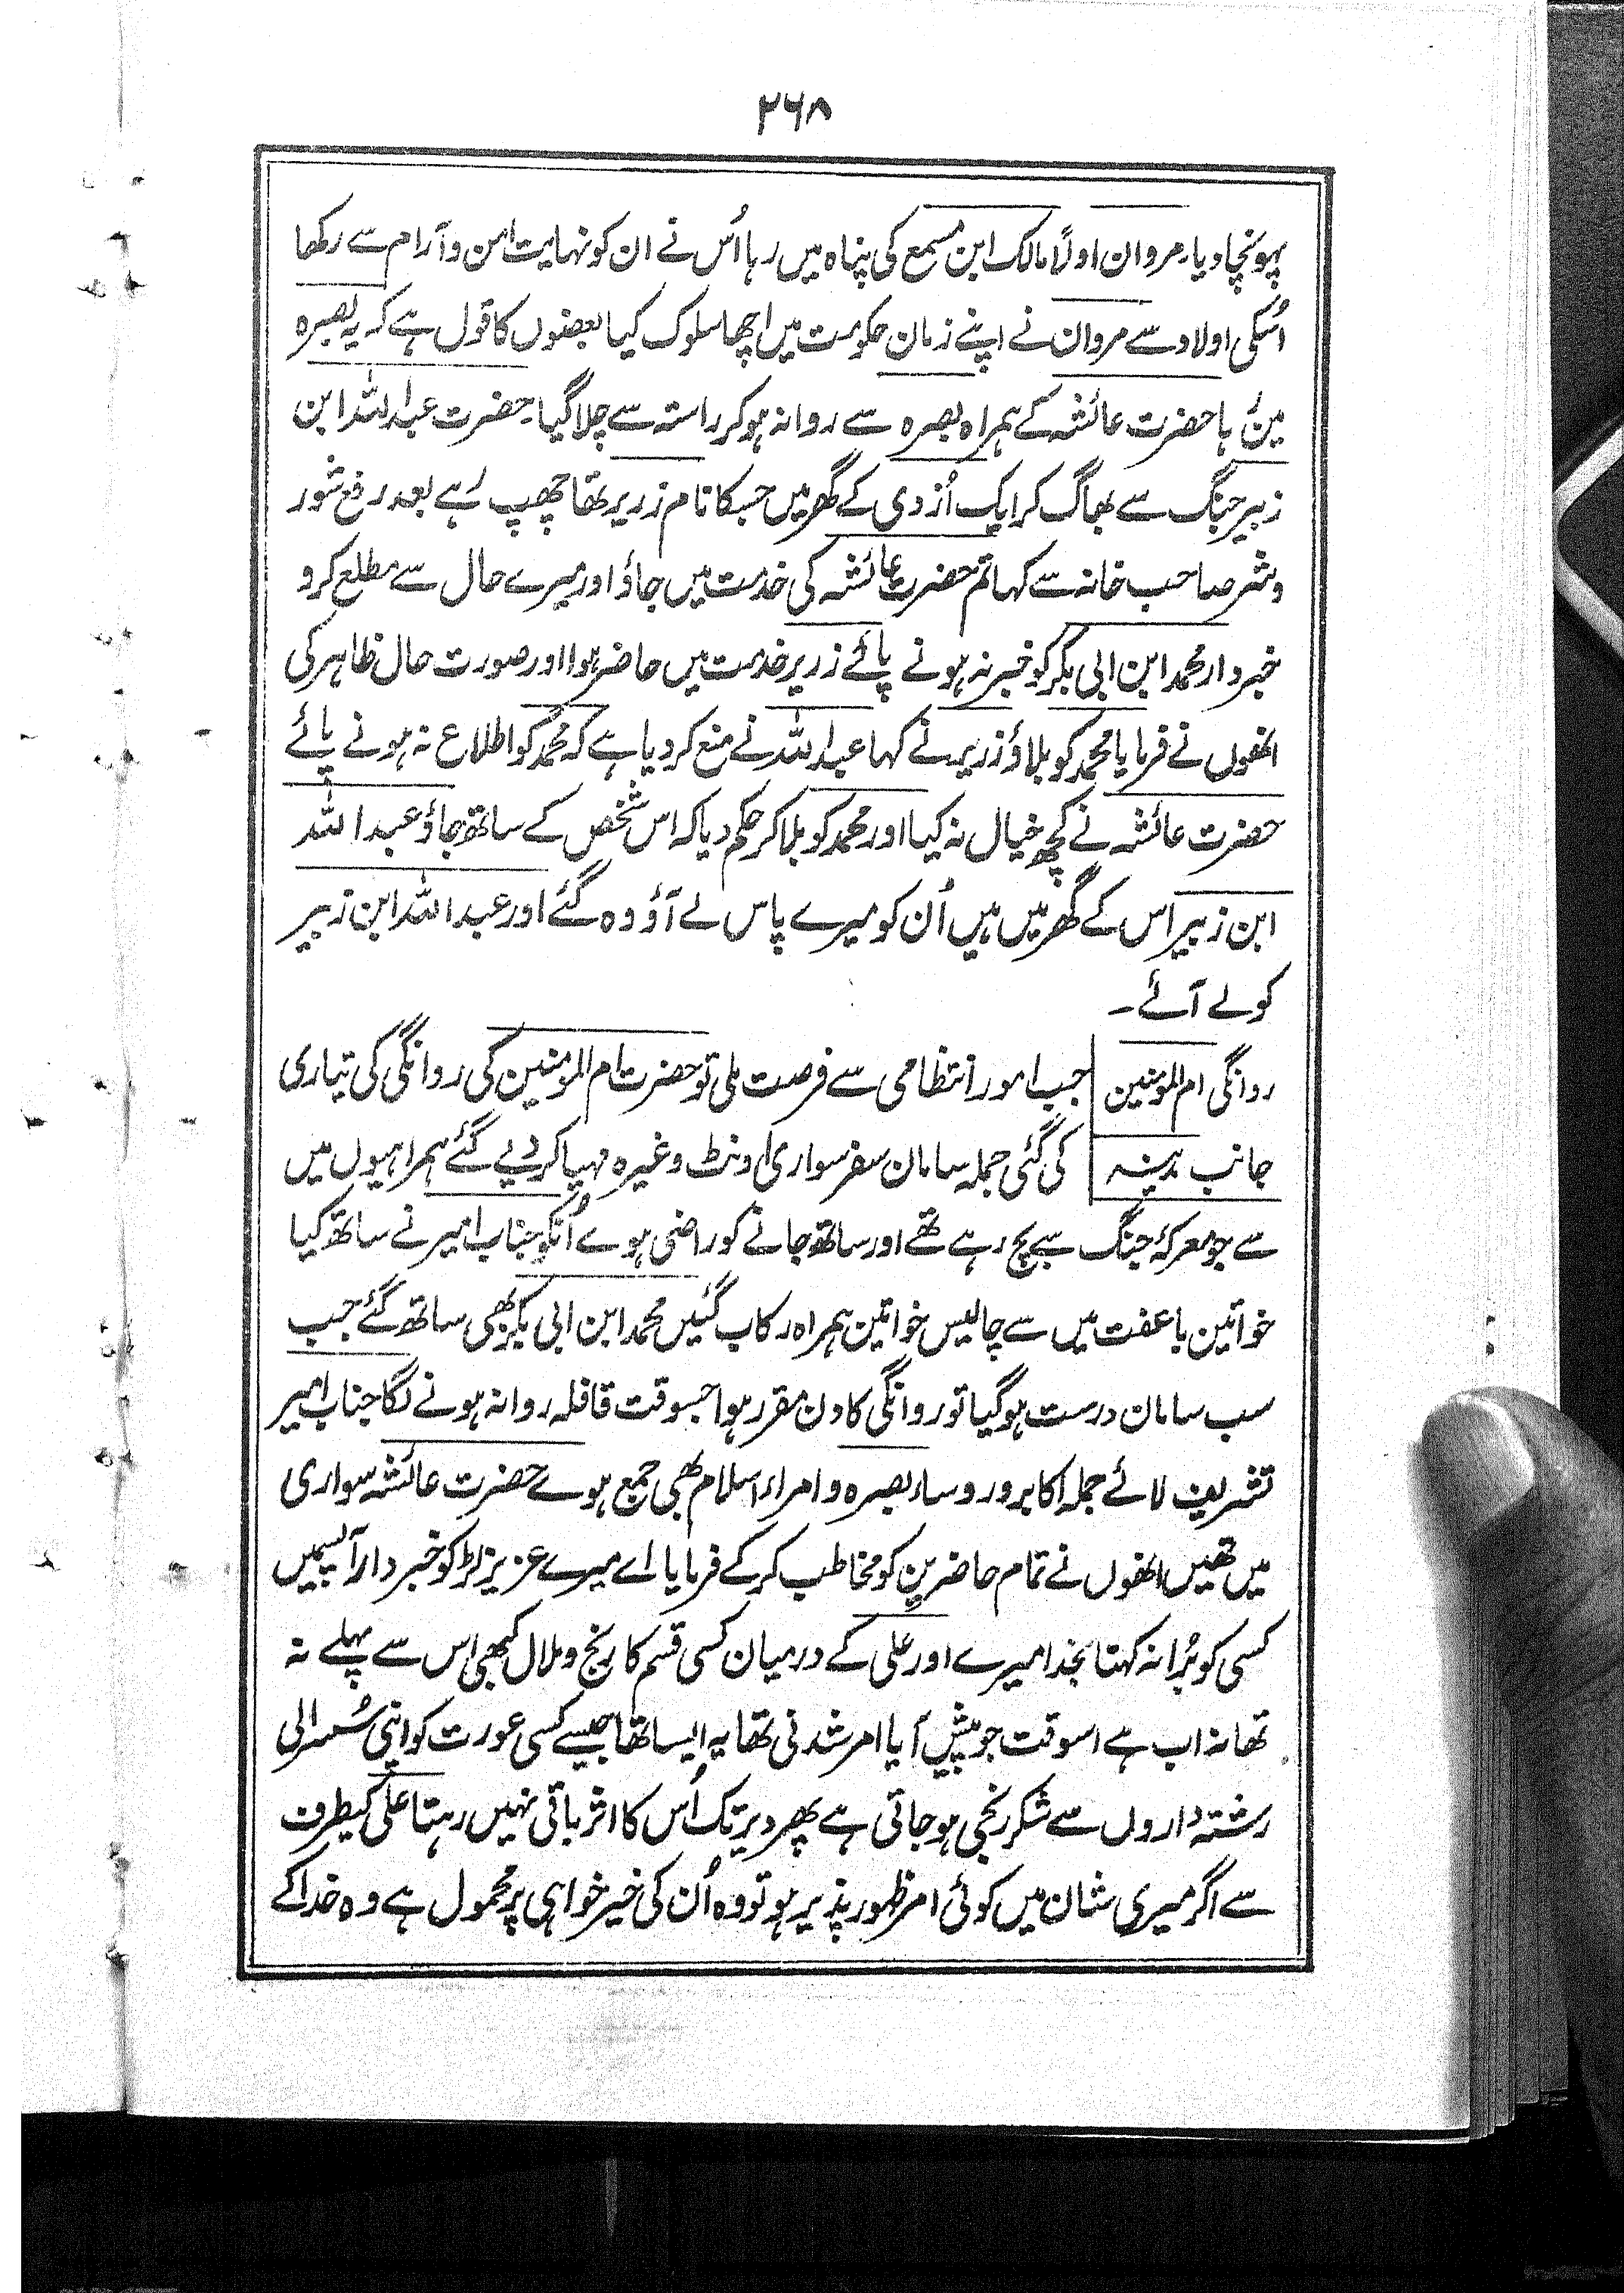 ۲۶۸
پہونچا دیا۔ مروان اولاً مالک ابن مسمع کی پناہ میں رہا اُس نے ان کو نہایت امن و آرام سے رکھا
اُسکی اولاد سے مروان نے اپنے زمان حکومت میں اچھا سلوک کیا بعضوں کا قول ہے کہ یہ بصرہ
میں ہا حضرت عائشہ کے ہمراہ بصرہ سے روانہ ہو کر راستہ سے چلا گیا۔ حضرت عبداللہ ابن
زبیر جنگ سے بھاگ کر ایک اُزدی کے گھر میں جسکا نام زریر تھا چھپ رہے بعد رفع شور
و شر صاحب خانہ سے کہا تم حضرت عائشہ کی خدمت میں جاؤ اور میرے حال سے مطلع کرو
خبردار محمد ابن ابی بکر کو خبر نہ ہونے پائے زریر خدمت میں حاضر ہوا اور صورت حال ظاہر کی
انھوں نے فرمایا محمد کو بلاؤ زریر نے کہا عبداللہ نے منع کر دیا ہے کہ محمد کو اطلاع نہ ہونے پائے
حضرت عائشہ نے کچھ خیال نہ کیا اور محمد کو بلا کر حکم دیا کہ اس شخص کے ساتھ جاؤ عبداللہ
ابن زبیر اس کے گھر میں ہیں اُن کو میرے پاس لے آؤ وہ گئے اور عبداللہ ابن زبیر
کو لے آئے۔
روانگی ام المؤمنین جب امور انتظامی سے فرصت ملی تو حضرت ام المؤمنین کی روانگی کی تیاری
جانب مدینہ کی گئی جملہ سامان سفر سواری اونٹ وغیرہ مہیا کر دیے گئے ہمراہیوں میں
سے جو معرکۂ جنگ سے بچ رہے تھے اور ساتھ جانے کو راضی ہوے اُنکو جناب امیر نے ساتھ کیا
خواتین باعفت میں سے چالیس خواتین ہمراہ رکاب گئیں محمد ابن ابی بکر بھی ساتھ گئے جب
سب سامان درست ہو گیا تو روانگی کا دن مقرر ہوا جسوقت قافلہ روانہ ہونے لگا جناب امیر
تشریف لائے جملہ اکابر و روساء بصرہ و امراء اسلام بھی جمع ہوے حضرت عائشہ سواری
میں تھیں انھوں نے تمام حاضرین کو مخاطب کر کے فرمایا اے میرے عزیز لڑکو خبردار آپسمیں
کسی کو بُرا نہ کہنا بخدا میرے اور علی کے درمیان کسی قسم کا رنج و ملال کبھی اس سے پہلے نہ
تھا نہ اب ہے اسوقت جو پیش آیا امر شدنی تھا یہ ایسا تھا جیسے کسی عورت کو اپنی سُسرالی
رشتہ داروں سے شکر رنجی ہو جاتی ہے پھر دیر تک اُس کا اثر باقی نہیں رہتا علی کیطرف
سے اگر میری شان میں کوئی امر ظہور پذیر ہو تو وہ اُن کی خیر خواہی پر محمول ہے وہ خدا کے